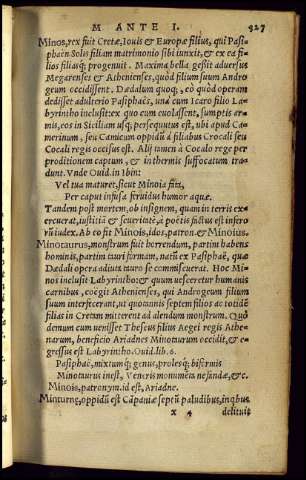 M ANTE I. 927
Minos, rex fuit Cretæ, Iouis & Europæ filius, qui Pasi-
phaën Solis filiam matrimonio sibi iunxit, & ex ea fi-
lios filiasq; progenuit. Maxima bella gessit aduersus
Megarenses & Athenienses, quòd filium suum Andro
geum occidissent. Dædalum quoq;, eò quòd operam
dedisset adulterio Pasiphaës, unà cum Icaro filio La-
byrintho inclusit: ex quo cum euolassent, sumptis ar-
mis, eos in Siciliam usq; persequutus est, ubi apud Ca-
merinum, seu Camicum oppidũ à filiabus Crocali seu
Cocali regis occisus est. Alij tamen à Cocalo rege per
proditionem captum, & in thermis suffocatum tra-
dunt. Vnde Ouid. in Ibin:
Vel tua maturet, sicut Minoia fata,
Per caput infusæ feruidus humor aquæ.
Tandem post mortem, ob insignem, quam in terris ex-
ercuerat, iustitiã & seueritatẽ, à poëtis fictus est infero
rũ iudex. Ab eo fit Minois, idos, patron. & Minoius.
Minotaurus, monstrum fuit horrendum, partim habens
hominis, partim tauri formam, natũ ex Pasiphaë, quæ
Dædali opera adiuta tauro se commiscuerat. Hoc Mi-
noi inclusit Labyrintho: & quum uesceretur humanis
carnibus, coëgit Athenienses, qui Androgeum filium
suum interfecerant, ut quotannis septem filios ac totidẽ
filias in Cretam mitterent ad alendum monstrum. Quò
demum cum uenisset Theseus filius Aegei regis Athe-
narum, beneficio Ariadnes Minotaurum occidit, & e-
gressus est Labyrintho. Ouid. lib. 6.
Pasiphaë, mixtumq; genus, prolesq; biformis
Minotaurus inest, Veneris monumẽta nefandæ, &c.
Minois, patronym. id est, Ariadne.
Minturnę, oppidũ est Cãpaniæ septũ paludibus, in qbus
x 4 delituit